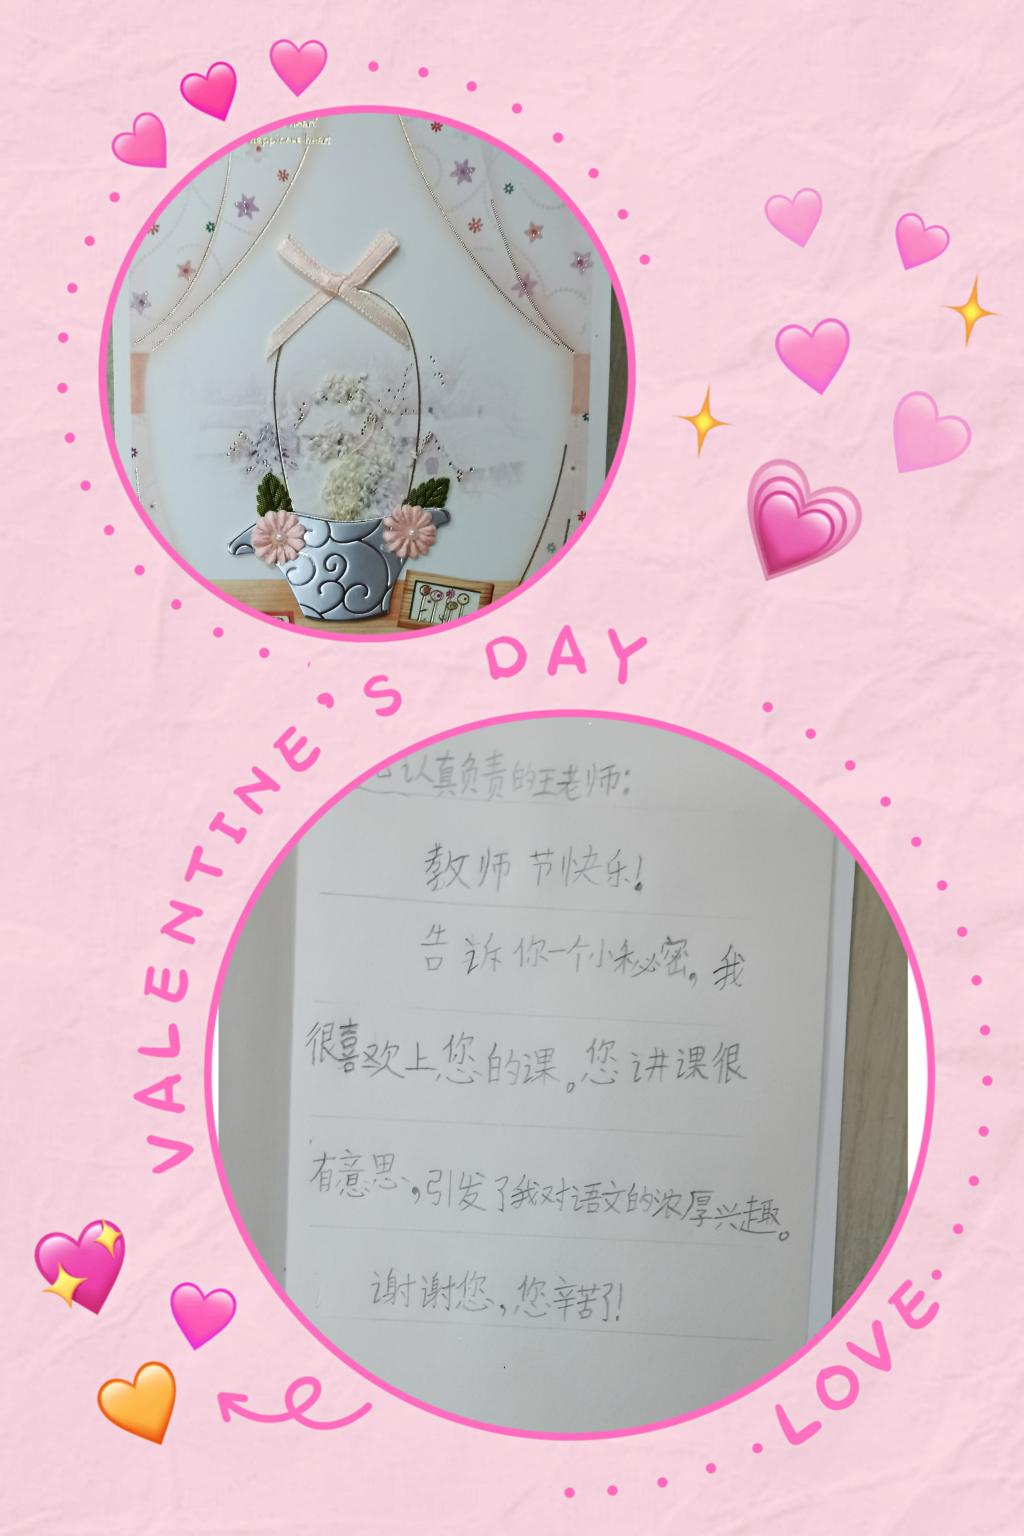 happiness heart
VALENTINE'S DAY
认真负责的王老师:
教师节快乐!
告诉你一个小秘密,我
很喜欢上您的课。您讲课很
有意思,引发了我对语文的浓厚兴趣。
谢谢您,您辛苦了!
LOVE